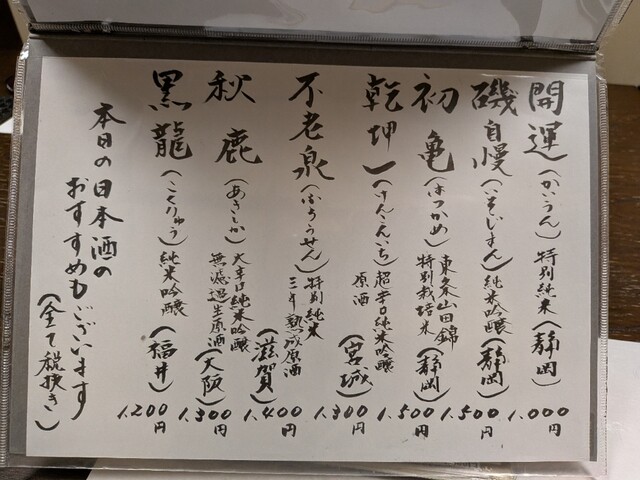 開運(かいうん)特別純米(静岡)1.000円
磯自慢(いそじまん)純米吟醸(静岡)1.500円
初亀(はつかめ)東条山田錦特別栽培米(静岡)1.500円
乾坤一(けんこんいち)超辛口純米吟醸原酒(宮城)1.300円
不老泉(ふろうせん)特別純米三年熟成原酒(滋賀)1.400円
秋鹿(あきしか)大辛口純米吟醸無濾過生原酒(大阪)1.300円
黒龍(こくりゅう)純米吟醸(福井)1.200円
本日の日本酒の
おすすめもございます
(全て税抜き)